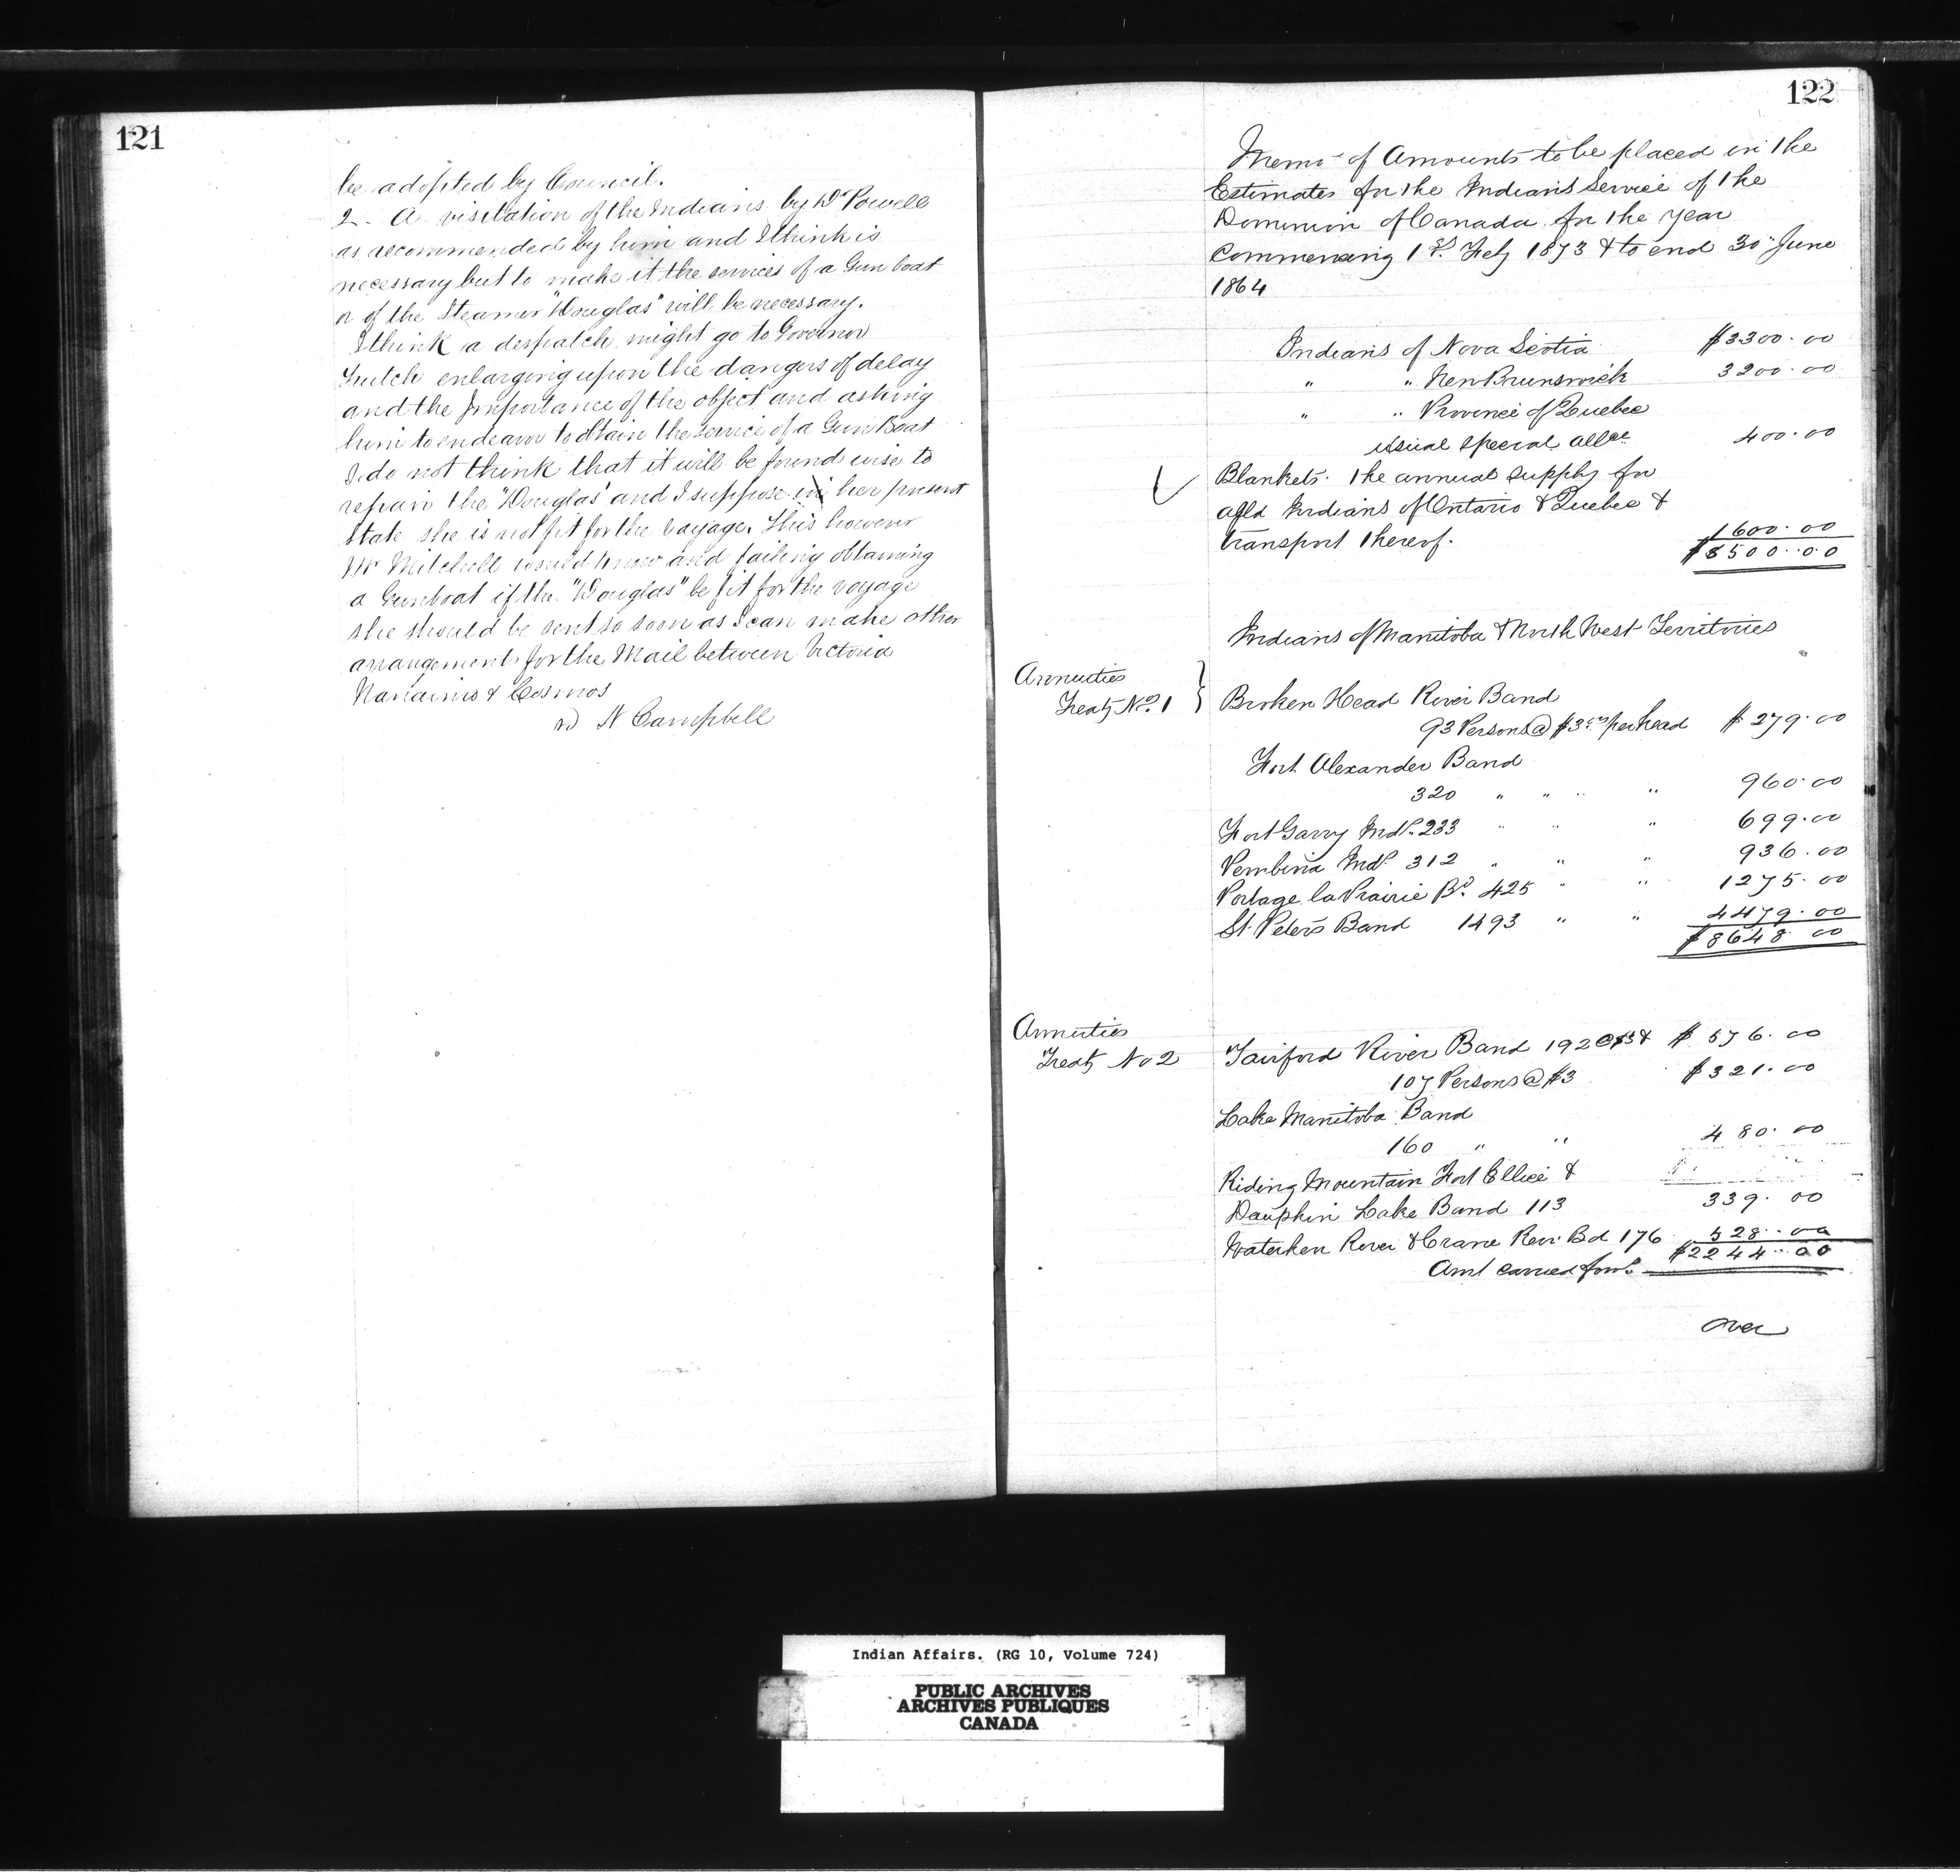 121
be adopted by Council.
2 - A visitation of the Indians by Dr Powell
as recommended by him and I think is
necessary but to make it the services of a Gun boat
or of the Steamer "Douglas" will be necessary.
I think a despatch might go to Governor
Trutch enlarging upon the dangers of delay
and the Importance of the object and asking
him to endeavor to obtain the service of a Gun Boat
I do not think that it will be found wise to
repair the "Douglas" and I suppose in her present
state she is not fit for the voyage. This however
Mr Mitchell would know and failing obtaining
a Gunboat if the "Douglas" be fit for the voyage
she should be sent so soon as I can make other
arrangements for the Mail between Victoria
Nanaimo & Cosmos
Campbell
122
Memo of Amounts to be placed in the
Estimates for the Indians Service of the
Dominion of Canada for the year
Commencing 1st July 1873 & to end 30" June
1864
Indians of Nova Scotia $3300.00
" " New Brunswick 3200.00
" " Province of Quebec
usual special allce 400.00
Blankets. The annual supply for
aged Indians of Ontario & Quebec &
transport thereof. 1600.00
$8500.00
Indians of Manitoba & North West Territories
Annuities
Treaty No. 1 } Broken Head River Band
93 Persons @ $3.00 per head $279.00
Fort Alexander Band
320 " " " " 960.00
Fort Garry Inds. 233 " " " 699.00
Pembina Inds. 312 " " " 936.00
Portage la Prairie Bd. 425 " " 1275.00
St. Peters Band 1493 " " 4479.00
$8648.00
Annuities
Treaty No 2 Fairford River Band 192 @ $3 & $576.00
107 Persons @ $3 $321.00
Lake Manitoba Band
160 " " 480.00
Riding Mountain Fort Ellice &
Dauphin Lake Band 113 339.00
Waterhen River & Crane Revr. Bd 176 528.00
$2244.00
Amt carried forwd.
over
Indian Affairs. (RG 10, Volume 724)
PUBLIC ARCHIVES
ARCHIVES PUBLIQUES
CANADA